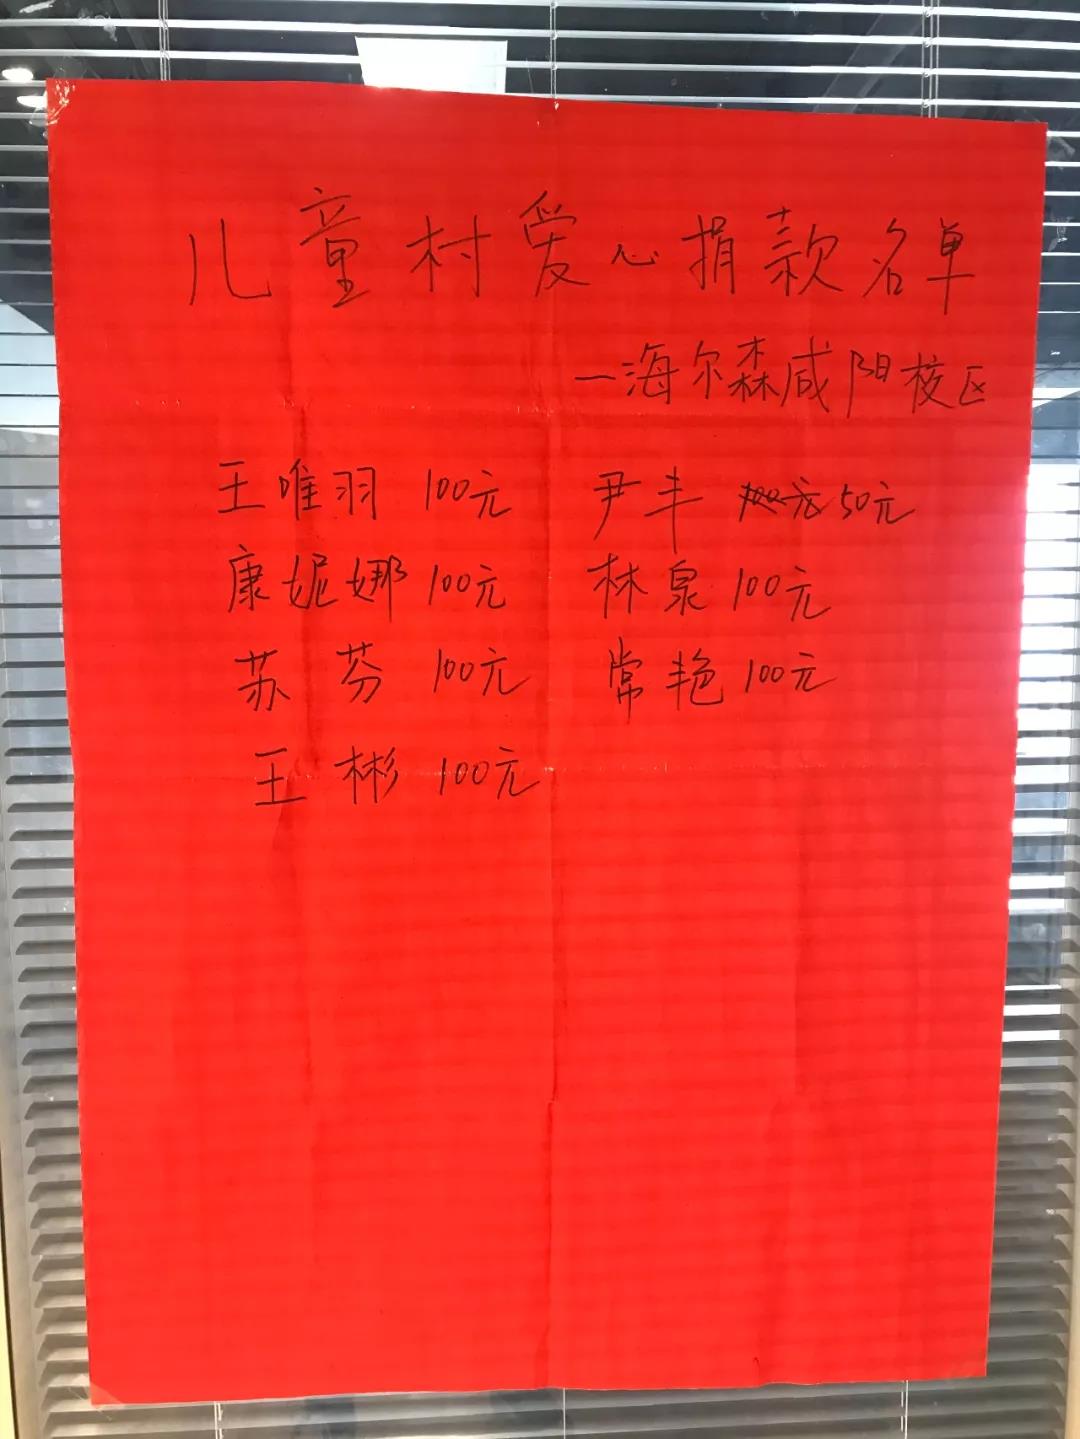 儿童村爱心捐款名单
—海尔森咸阳校区
王唯羽 100元 尹丰 100元 50元
康妮娜 100元 林泉 100元
苏芬 100元 常艳 100元
王彬 100元